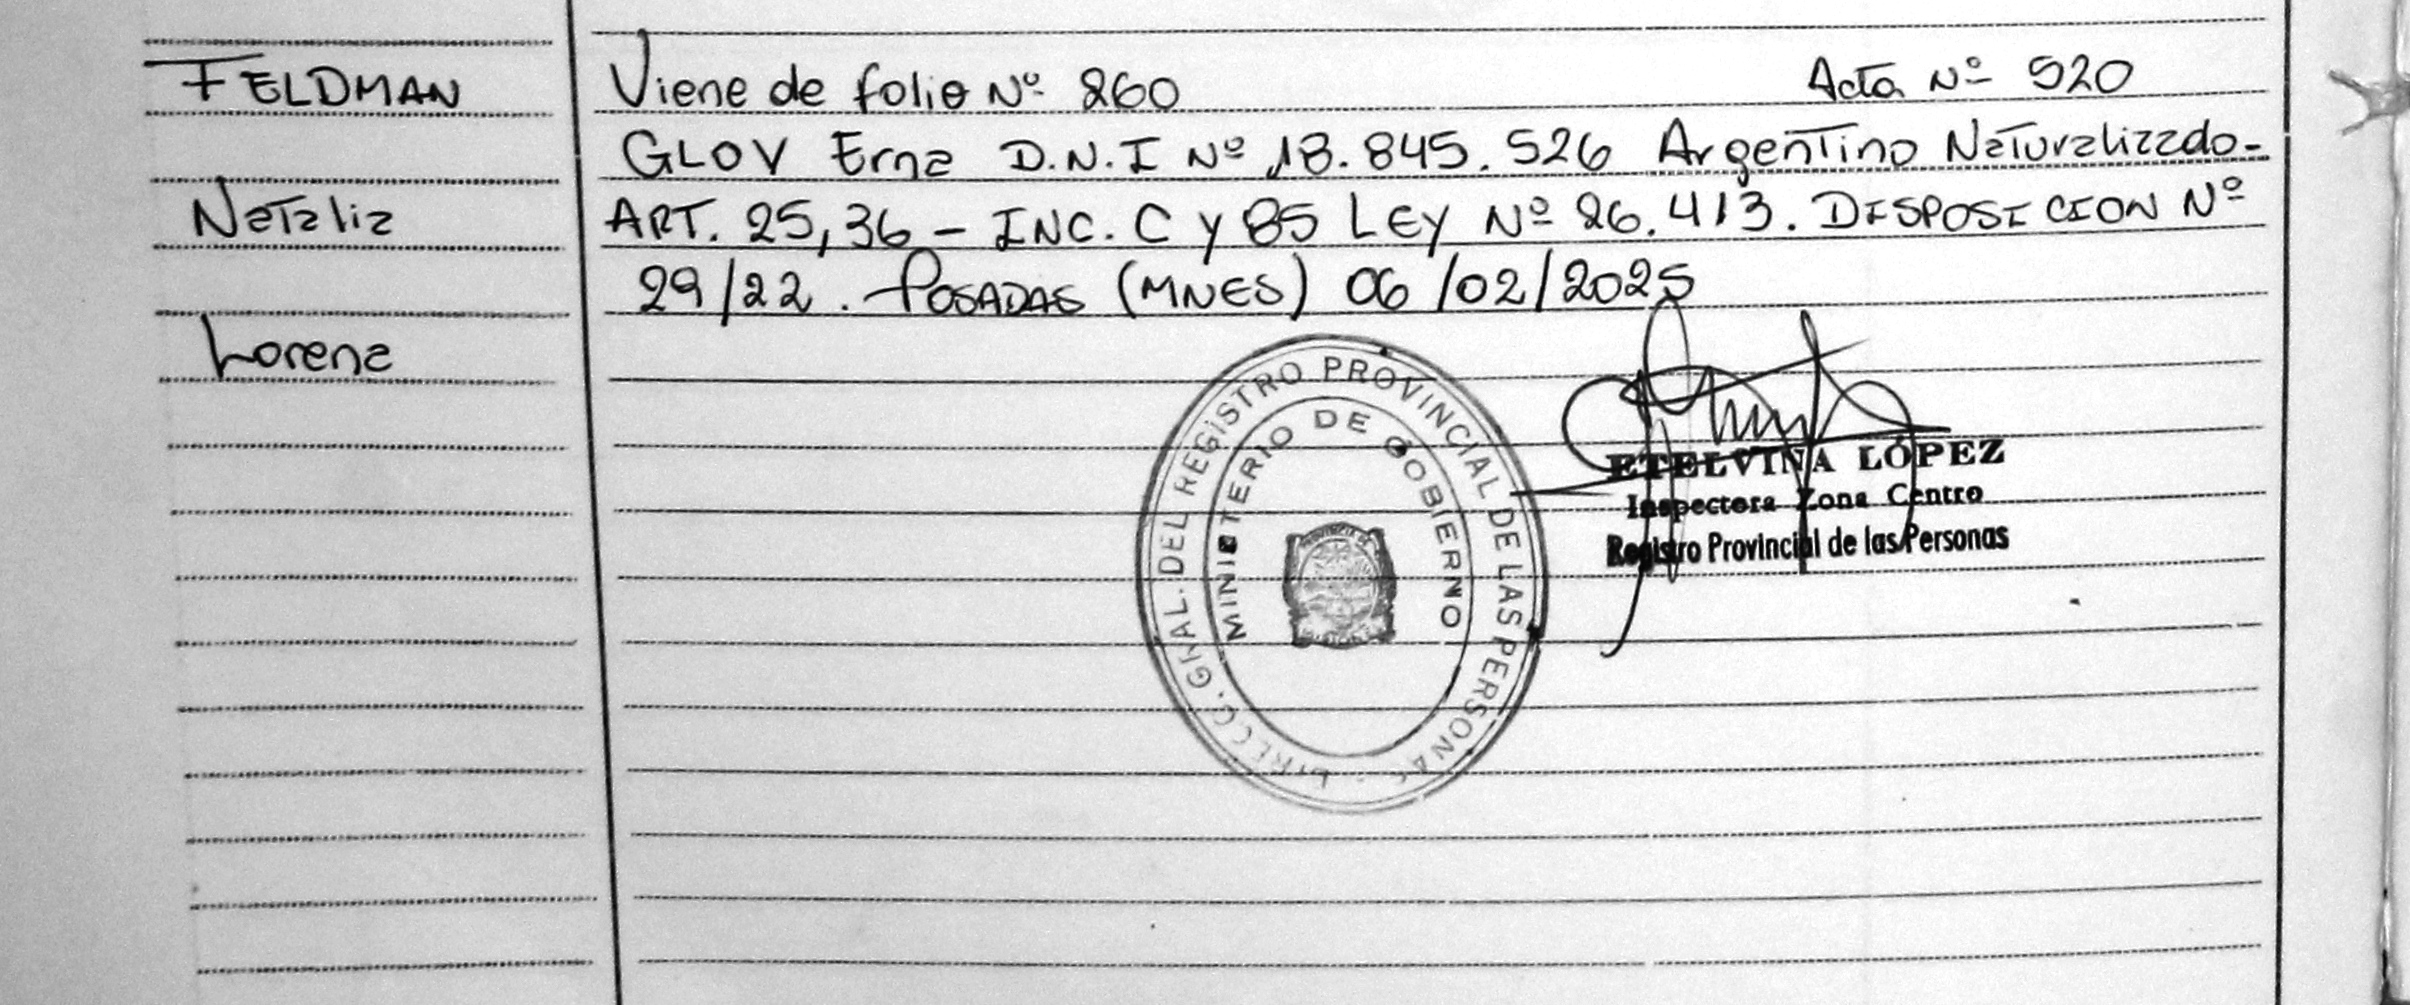 FELDMAN
Natalia
Lorena
Viene de folio Nº 260
Acta Nº 520
GLOV Erna D.N.I Nº 18.845.526 Argentino Naturalizado-
ART. 25,36 - INC. C y 85 LEY Nº 26.413. DISPOSICION Nº
29/22. POSADAS (MNES) 06/02/2025
DIRECC. GRAL. DEL REGISTRO PROVINCIAL DE LAS PERSONAS
MINISTERIO DE GOBIERNO
ETELVINA LÓPEZ
Inspectora Zona Centro
Registro Provincial de las Personas